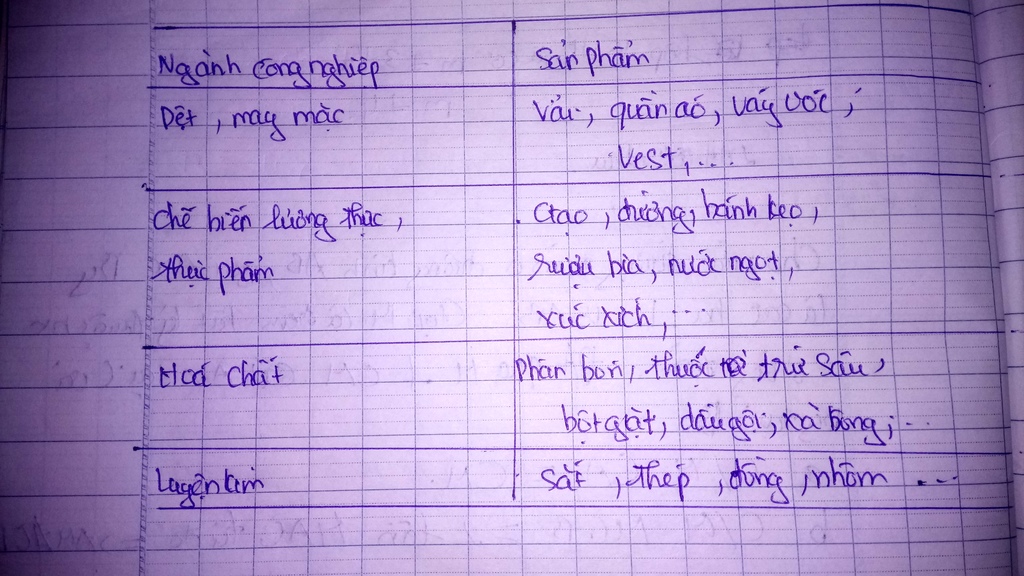 Ngành công nghiệp
Sản phẩm
Dệt, may mặc
Vải, quần áo, váy vóc,
Vest,....
Chế biến lương thực,
thực phẩm
Gạo, đường, bánh kẹo,
rượu bia, nước ngọt,
xúc xích, ...
Hoá chất
phân bón, thuốc trừ sâu,
bột giặt, dầu gội, xà bông, ...
Luyện kim
Sắt, thép, đồng, nhôm ...